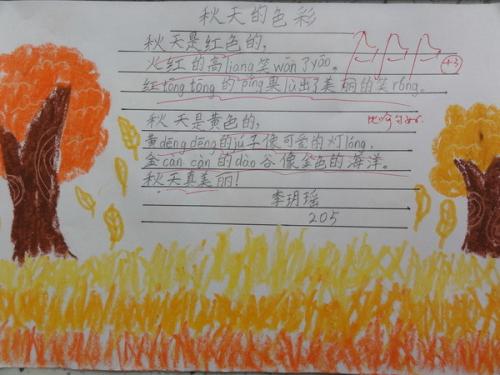 秋天的色彩
秋天是红色的,
火红的高liang笑wān了yāo。
红tōng tōng的píng果lù出了美丽的笑róng。
秋天是黄色的,
黄dēng dēng的jú子像可爱的灯lóng,
金càn càn的dào谷像金色的海洋。
秋天真美丽!
李玥瑶
205